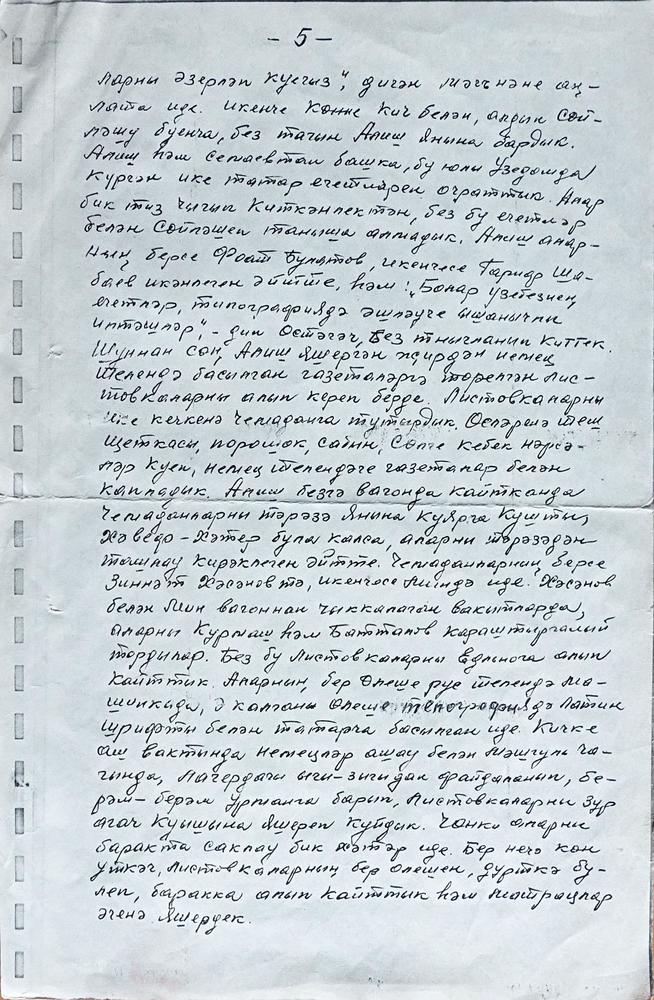 - 5 -
ларны әзерләп куегыз", дигән мәгънәне аң-
лата иде. Икенче көнне кич белән, алдан сөй-
ләшү буенча, без тагын Алиш янына бардык.
Алиш һәм Симаевтан башка, бу юлы Узедомда
күргән ике татар егетләрен очраттык. Алар
бик тиз чыгып киткәнлектән, без бу егетләр
белән сөйләшеп таныша алмадык. Алиш алар-
ның берсе Фоат Булатов, икенчесе Гариф Ша-
баев икәнлеген әйтте, һәм: "Болар үзебезнең
егетләр, типографиядә эшләүче ышанычлы
иптәшләр", - дип өстәгәч, без тынычланып киттек.
Шуннан соң, Алиш яшергән җирдән немец
телендә басылган газеталарга төрелгән лис-
товкаларны алып кереп бирде. Листовкаларны
ике кечкенә чемоданга тутырдык. Өсләренә теш
щеткасы, порошок, сабын, сөлге кебек нәрсә-
ләр куеп, немец телендәге газеталар белән
капладык. Алиш безгә вагонда кайтканда
чемоданларны тәрәзә янына куярга кушты,
хәвеф-хәтәр була калса, аларны тәрәзәдән
ташлау кирәклеген әйтте. Чемоданларның берсе
Зиннәт Хәсәновта, икенчесе миндә иде. Хәсәнов
белән мин вагоннан чыккалаган вакытларда,
аларны Курмаш һәм Батталов караштыргалый
тордылар. Без бу листовкаларны Едльнога алып
кайттык. Аларның бер өлеше рус телендә ма-
шинкада, ә калганы өлеше типографиядә латин
шрифты белән татарча басылган иде. Кичке
аш вактында немецлар ашау белән мәшгуль ча-
гында, лагердагы ыгы-зыгыдан файдаланып, бе-
рәм-берәм урманга барып, листовкаларны зур
агач куышына яшереп куйдык. Чөнки аларны
баракта саклау бик хәтәр иде. Бер ничә көн
үткәч, листовкаларның бер өлешен, дүрткә бү-
леп, баракка алып кайттык һәм матрацлар
эченә яшердек.